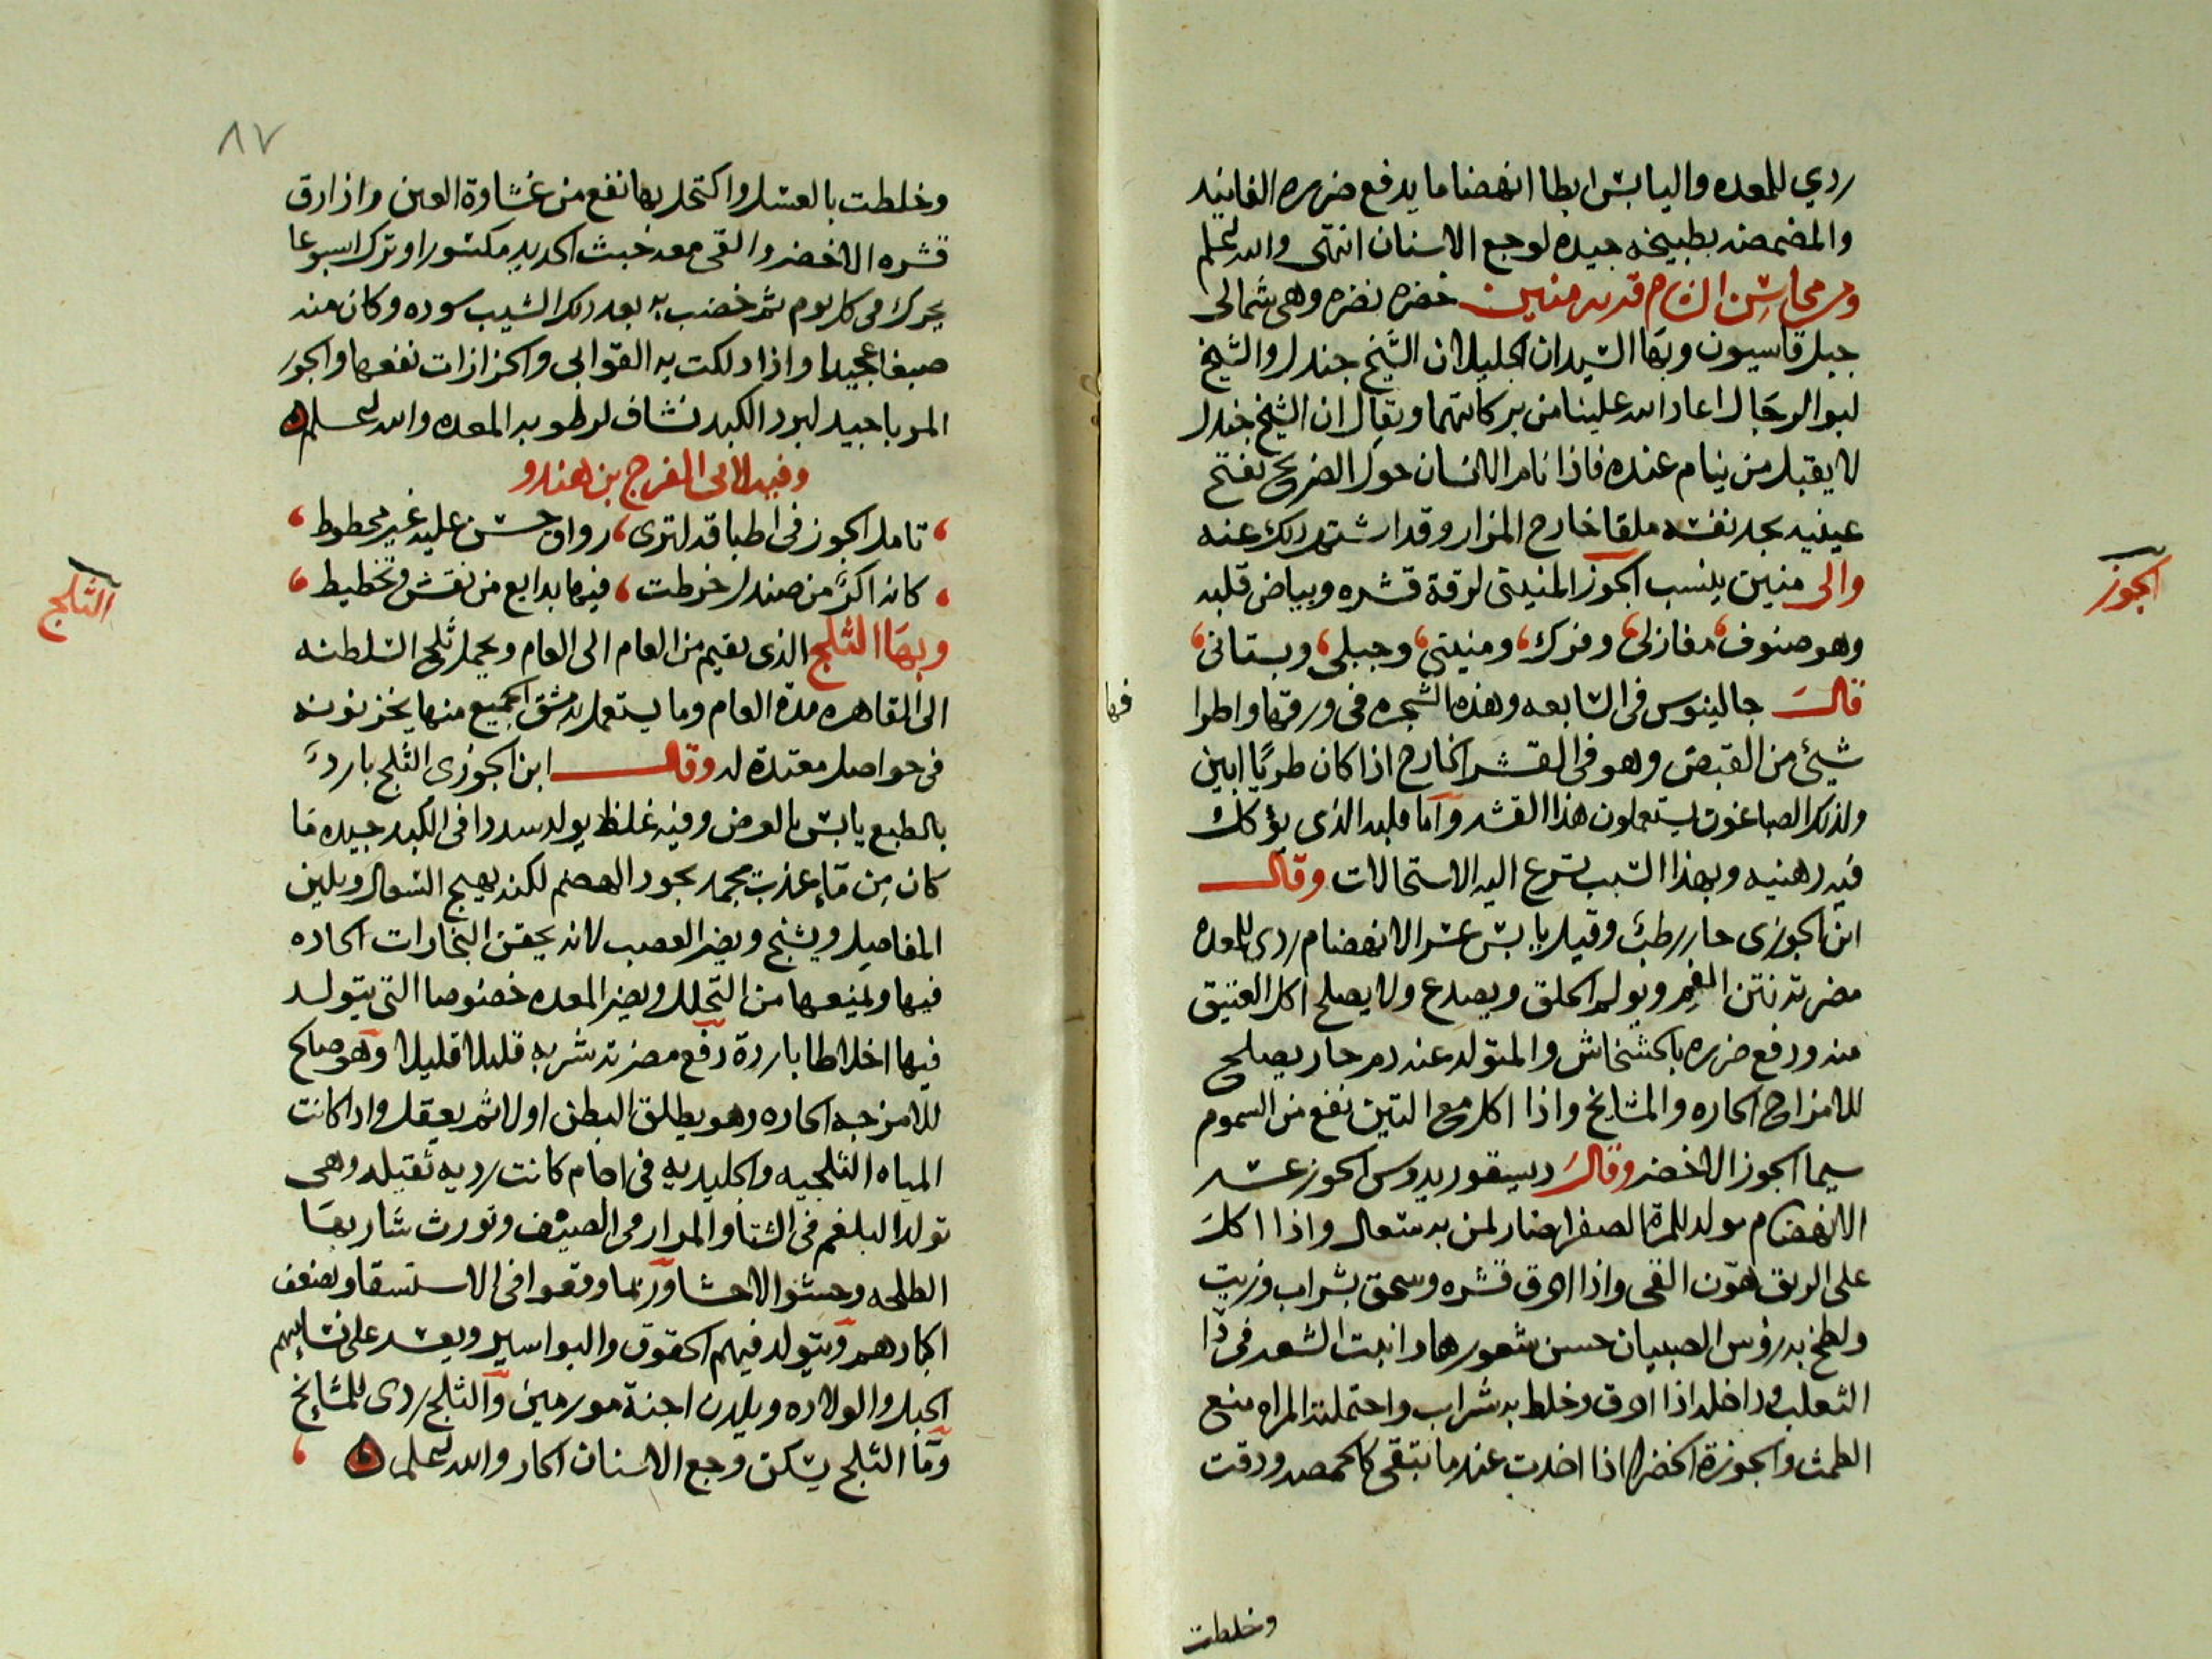 ردي للمعده واليابس ابطا انهضاما يدفع ضرره الفانيد
والمضمضه بطبيخه جيده لوجع الاسنان انتهى والله اعلم
ومن محاسن الشام قريه منين خضره نضره وهى شمالى
جبل قاسيون وبها السيدان الجليلان الشيخ جندل والشيخ
ابوالرجال اعاد الله علينا من بركاتهما ويقال ان الشيخ جندل
لا يقبل من ينام عنده فاذا نام الانسان حول الضريح يفتح
عينيه يجد نفسه ملقا خارج المزار وقد اشتهر ذلك عنه
والى منين ينسب الجوز المنينى لرقة قشره وبياض قلبه
الجوز
وهو صنوف مغازلى وفرك ومنينى وجبلى وبستانى
قال جالينوس فى السابعه وهذه الشجره فى ورقها واطرا
فها
شيئ من القبض وهو فى القشر الخارج اذا كان طريا ابين
ولذلك الصباغون يستعملون هذا القشر واما قلبه الذى يؤكل
فيه دهنيه وبهذا السبب تسرع اليه الاستحالات وقال
ابن الجوزى حار رطب وقيل يابس عسر الانهضام ردى للمعده
مضرته نتن الفم ويولم الحلق ويصدع ولا يصلح اكل العتيق
منه ودفع ضرره بالخشخاش والمتولد عنه دم حار يصلح
للامزاج الحاره والمشايخ واذا اكل مع التين نفع من السموم
سيما الجوز الاخضر وقال ديسقوريدوس الجوز عسر
الانهضام مولد للمرة الصفرا ضار لمن به سعال واذا اكل
على الريق هون القى واذا احرق قشره وسحق بشراب وزيت
ولطخ به رؤس الصبيان حسن شعورها وانبت الشعر فى دا
الثعلب وداخله اذا احرق وخلط به شراب واحتملته المراه منع
الطمث والجوزة الخضرا اذا اخذت عند ما تبقى كالحمصه ودقت
وخلطت
٨٧
وخلطت بالعسل واكتحل بها نفع من غشاوة العين واذا رق
قشره الاخضر والقى معه خبث الحديد مكسورا وترك اسبوعا
يحرك فى كل يوم ثم خضب به بعد ذلك الشيب سوده وكان منه
صبغا عجيبا واذا دلكت به القوابى والحزازات نفعها والجوز
المربا جيد لبرد الكبد نشاف لرطوبه المعده والله اعلم
وفيه لابى الفرج بن هندو
تامل الجوز فى اطباقه لترى رواق حسن عليه غير محطوط
كانه اكر من صندل خرطت فيها بدايع من نقش وتخطيط
وبها الثلج الذى يقيم من العام الى العام ويحمل ثلج السلطنه
الثلج
الى القاهره مدة العام وما يستعمل بدمشق الجميع منها يخزنونه
فى حواصل معتدة له وقال ابن الجوزى الثلج بارد
بالطبع يابس بالعرض وفيه غلظ يولد سددا فى الكبد جيده ما
كان من مآء عذب يجمد يجود الهضم لكنه يهيج السعال ويلين
المفاصل ويشنج ويضر العصب لانه يحقن البخارات الحاره
فيها ويمنعها من التحلل ويضر المعده خصوصا التى يتولد
فيها اخلاطا باردة دفع مضرته شربه قليلا قليلا وهو صالح
للامزجه الحاره وهو يطلق البطن اولا ثم يعقل واذا كانت
المياه الثلجيه والجليديه فى اجام كانت رديه ثقيله وهى
تولد البلغم فى الشتا والمرار فى الصيف وتورث شاربها
الطلحه وحشو الاحشا وربما وقعوا فى الاستسقا وتضعف
اكبادهم ويتولد فيهم الحقوق والبواسير ويعسر على نسايهم
الحبل والولاده ويلدن اجنة مورمين والثلج ردى للمشايخ
ومآ الثلج يسكن وجع الاسنان الحار والله اعلم